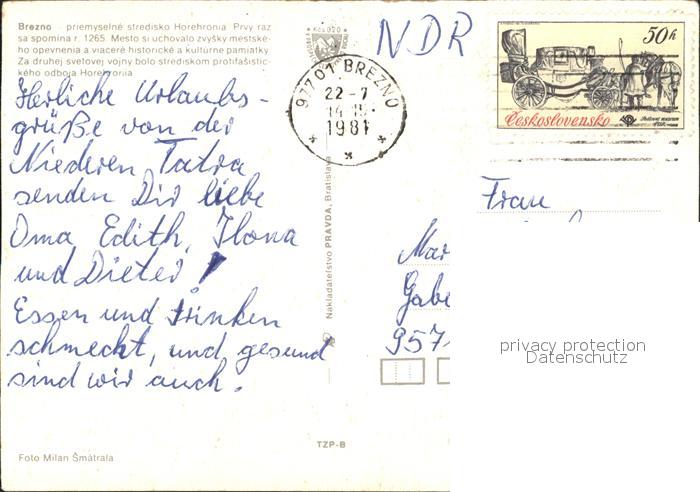 Brezno - priemyselné stredisko Horehronia Prvý raz
sa spomína r. 1265. Mesto si uchovalo zvyšky mestské-
ho opevnenia a viaceré historické a kultúrne pamiatky
Za druhej svetovej vojny bolo strediskom protifašistic-
kého odboja Horehronia
NDR
977 01 BREZNO
22 -7
1981
50h
Československo
Herzliche Urlaubs-
grüße von der
Niederen Tatra
senden Dir liebe
Oma Edith, Ilona
und Dieter!
Essen und trinken
schmeckt, und gesund
sind wir auch.
Nakladateľstvo PRAVDA, Bratislava
Frau
Mar
Gabe
957
privacy protection
Datenschutz
TZP-B
Foto Milan Šmátrala